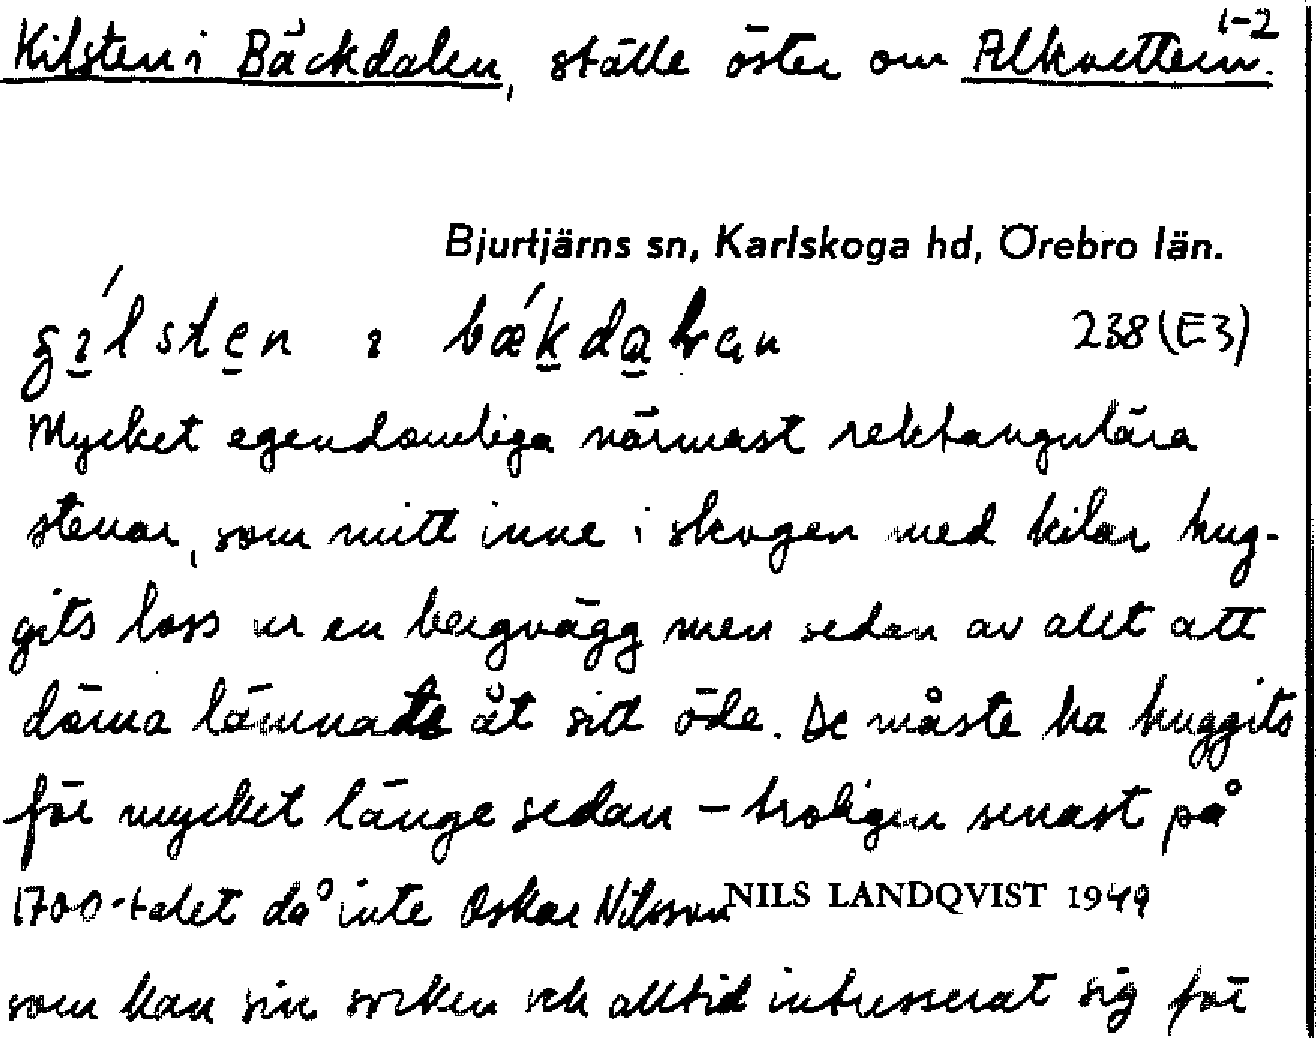 1-2
Kilsten i Bäckdalen, ställe öster om Alkvettern.
Bjurtjärns sn, Karlskoga hd, Örebro län.
238 (E3)
Mycket egendomliga närmast rektangulära
stenar, som mitt inne i skogen med kilar hug-
gits loss ur en bergvägg men sedan av allt att
döma lämnats åt sitt öde. De måste ha huggits
för mycket länge sedan – troligen senast på
1700-talet då inte Oskar Nilsson NILS LANDQVIST 1949
som kan sin socken och alltid intresserat sig för